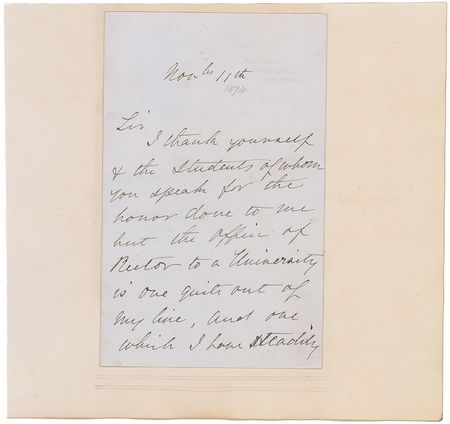 Nov br 11th
1874
Sir
I thank yourself
& the Students of whom
you speak for the
honor done to me
but the Office of
Rector to a University
is one quite out of
my line, and one
which I have steadily